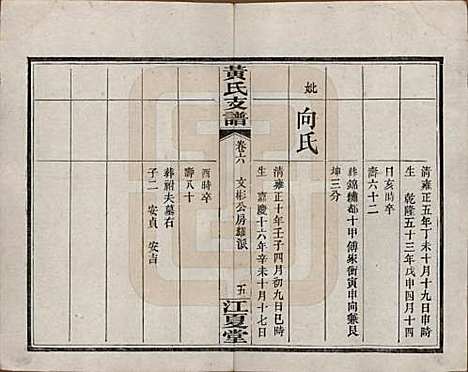 清雍正五年丁未十月十九日申時
生 乾隆五十三年戊申四月十四
日亥時卒
壽六十二
葬錦穗都十甲傅家衝寅申向兼艮
坤三分
妣 向氏
清雍正十年壬子四月初九日巳時
生 嘉慶十六年辛未十月十七日
黃氏支譜 卷六 文彬公房 派 五 江夏堂
酉時卒
壽八十
葬祔夫墓右
子二 安貞 安吉